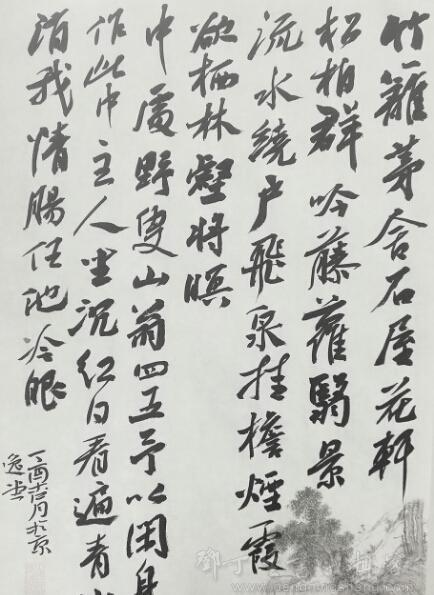 竹籬茅舍石屋花軒
松柏群吟藤蘿翳景
流水繞户飛泉挂檐煙霞
欲栖林壑將暝
中處野叟山翁四五予以閑身
作此中主人坐沉紅日看遍青山
消我情腸任他冷眼
丁酉吉月於京
逸堂